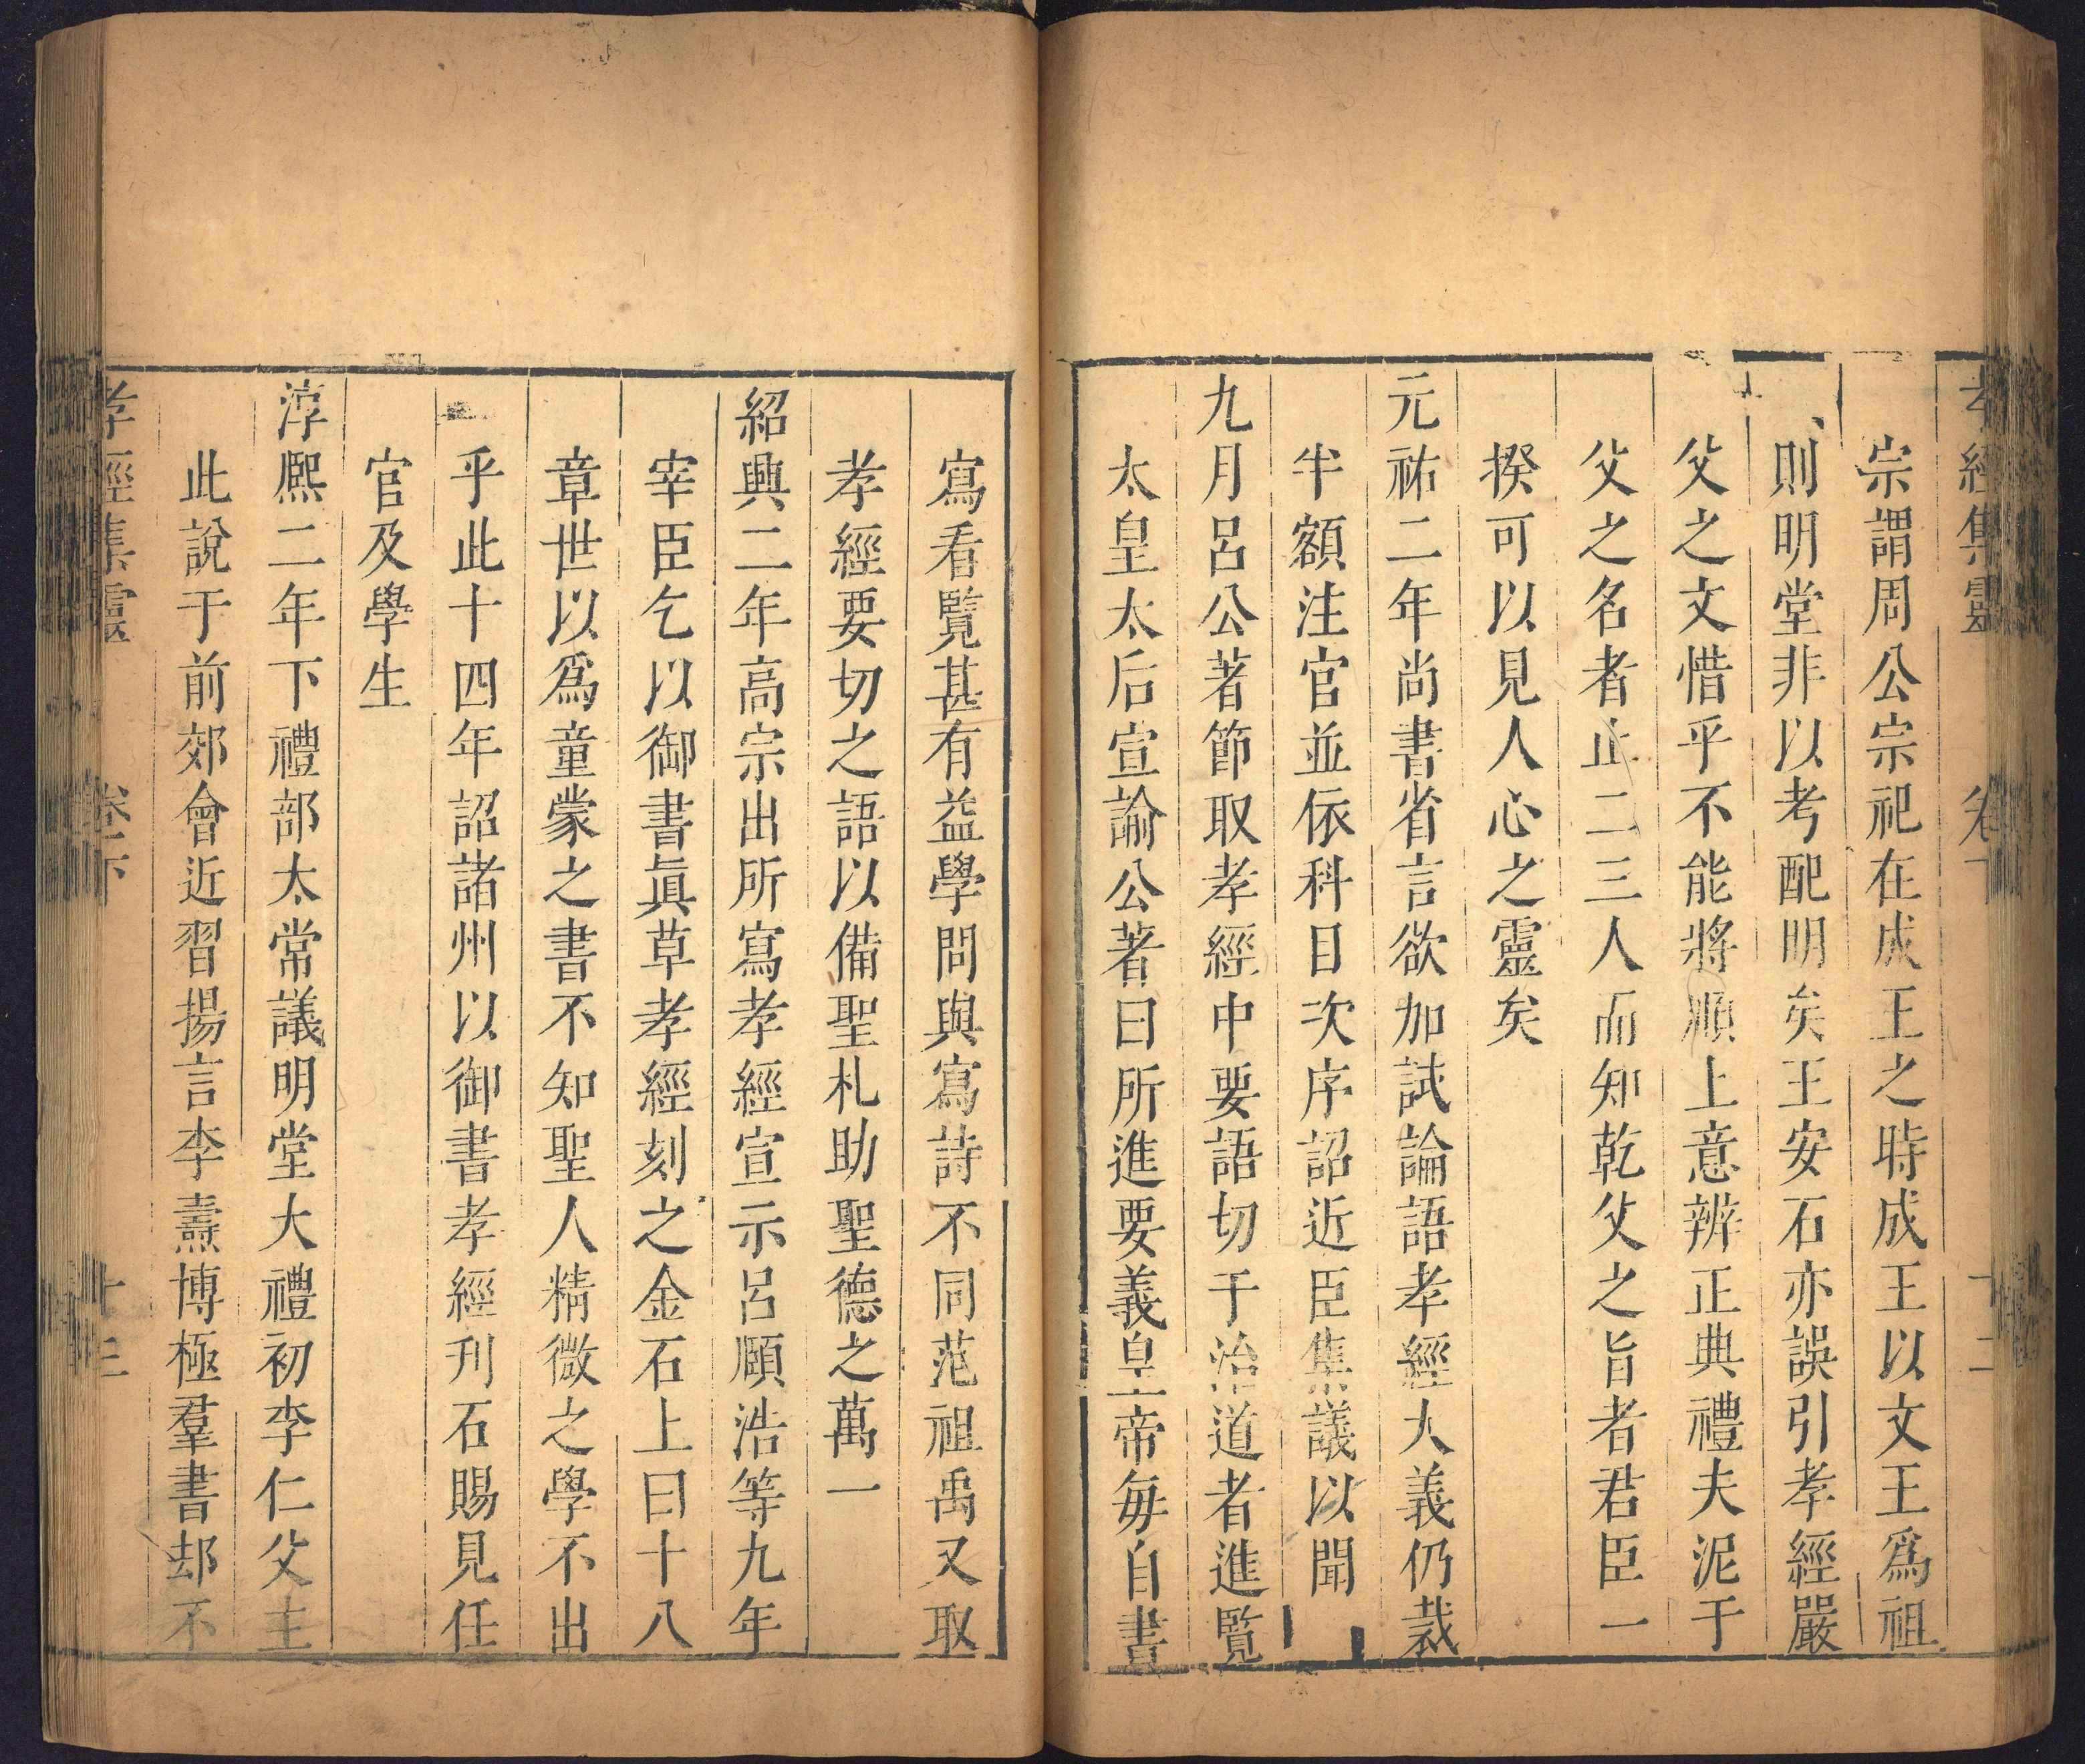 宗謂周公宗祀在成王之時成王以文王爲祖
則明堂非以考配明矣王安石亦誤引孝經嚴
父之文惜乎不能將順上意辨正典禮夫泥于
父之名者止二三人而知乾父之旨者君臣一
揆可以見人心之靈矣
元祐二年尚書省言欲加試論語孝經大義仍裁
半額注官並依科目次序詔近臣集議以聞
九月呂公著節取孝經中要語切于治道者進覽
太皇太后宣諭公著曰所進要義皇帝每自書
寫看覽甚有益學問與寫詩不同范祖禹又取
孝經要切之語以備聖札助聖德之萬一
紹興二年高宗出所寫孝經宣示呂頤浩等九年
宰臣乞以御書眞草孝經刻之金石上曰十八
章世以爲童蒙之書不知聖人精微之學不出
乎此十四年詔諸州以御書孝經刊石賜見任
官及學生
淳熙二年下禮部太常議明堂大禮初李仁父主
此說于前郊會近習揚言李燾博極羣書却不
孝經集靈 卷下 十三